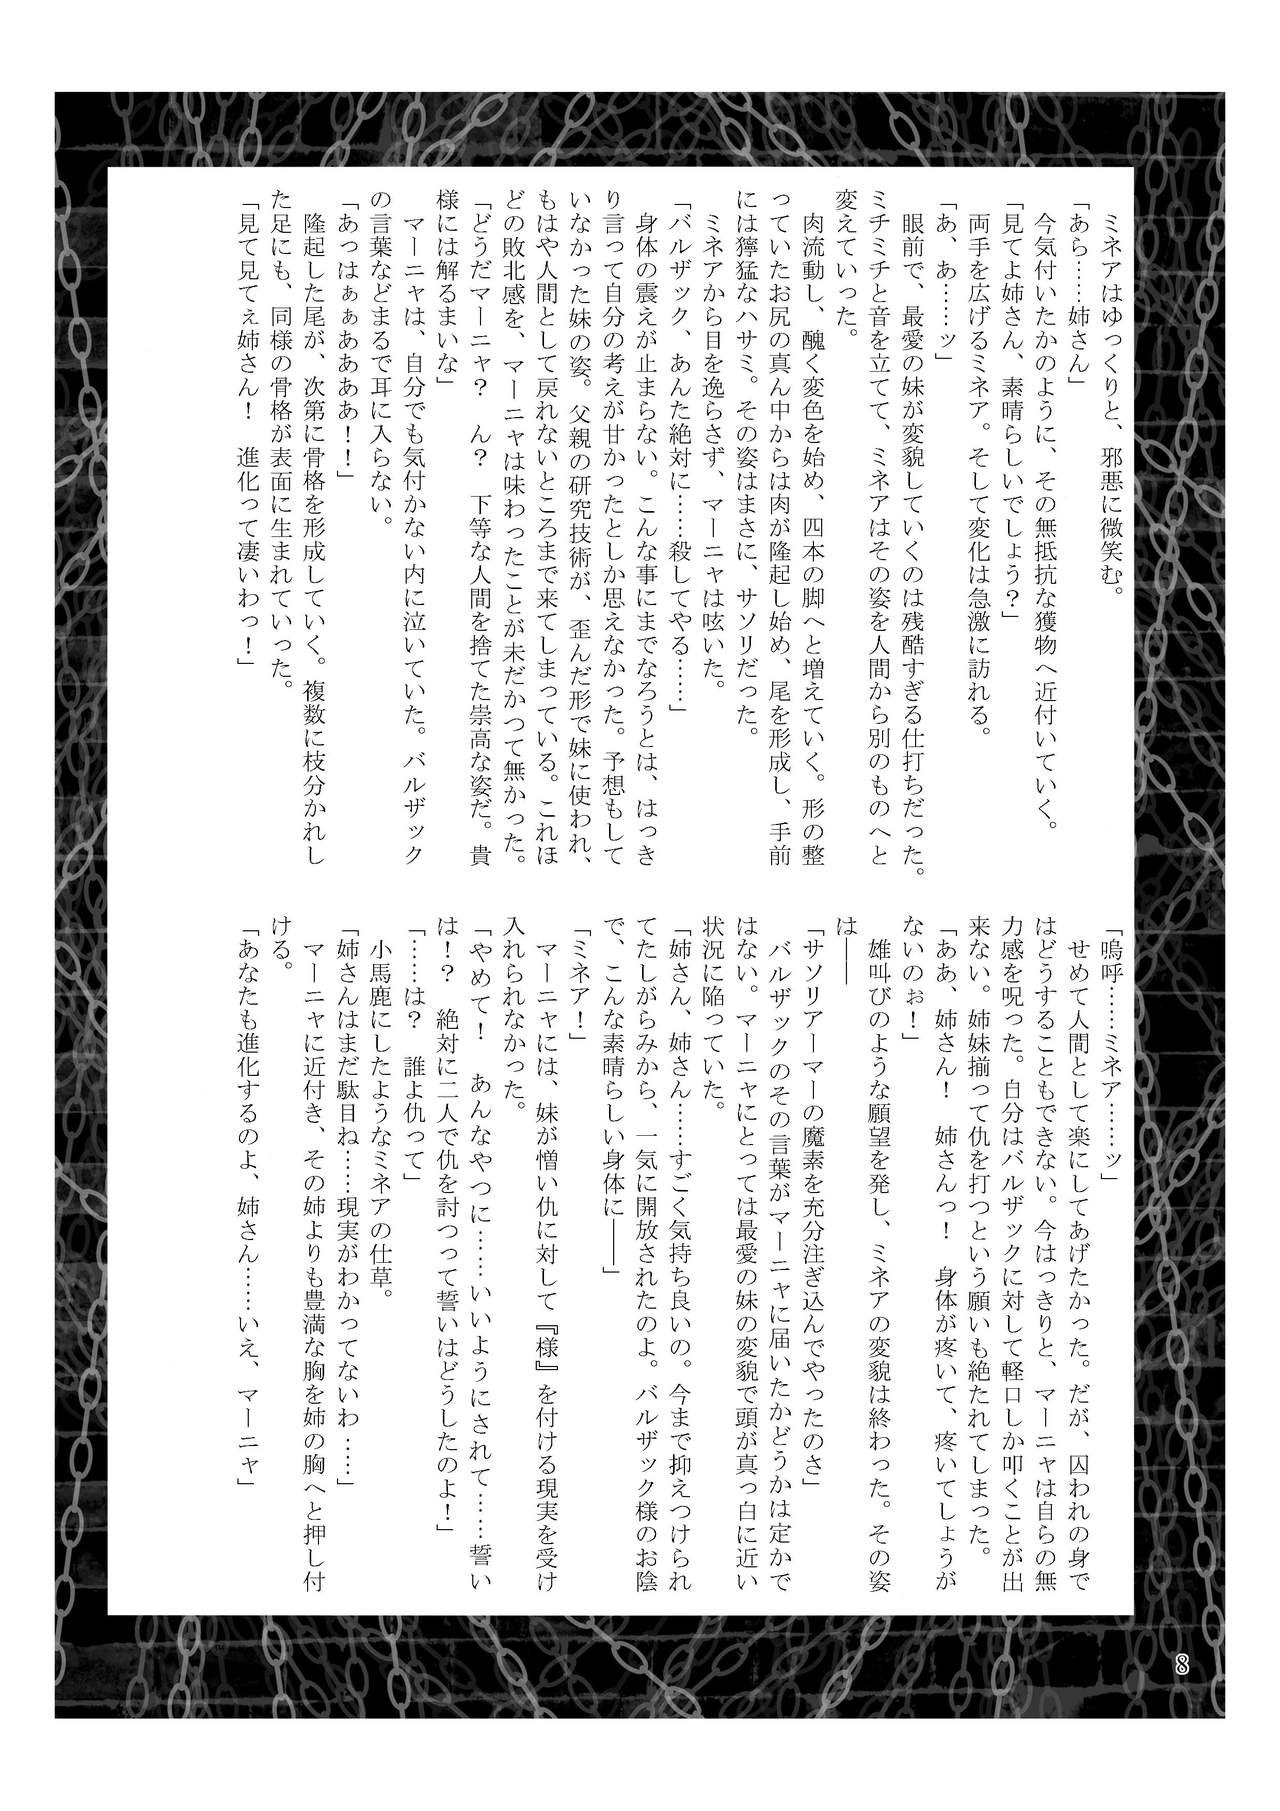 ミネアはゆっくりと、邪悪に微笑む。
「あら……姉さん」
今気付いたかのように、その無抵抗な獲物へ近付いていく。
「見てよ姉さん、素晴らしいでしょう？」
両手を広げるミネア。そして変化は急激に訪れる。
「あ、あ……ッ」
眼前で、最愛の妹が変貌していくのは残酷すぎる仕打ちだった。
ミチミチと音を立てて、ミネアはその姿を人間から別のものへと
変えていった。
肉流動し、醜く変色を始め、四本の脚へと増えていく。形の整
っていたお尻の真ん中からは肉が隆起し始め、尾を形成し、手前
には獰猛なハサミ。その姿はまさに、サソリだった。
ミネアから目を逸らさず、マーニャは呟いた。
「バルザック、あんた絶対に……殺してやる……」
身体の震えが止まらない。こんな事にまでなろうとは、はっき
り言って自分の考えが甘かったとしか思えなかった。予想もして
いなかった妹の姿。父親の研究技術が、歪んだ形で妹に使われ、
もはや人間として戻れないところまで来てしまっている。これほ
どの敗北感を、マーニャは味わったことが未だかつて無かった。
「どうだマーニャ？　ん？　下等な人間を捨てた崇高な姿だ。貴
様には解るまいな」
マーニャは、自分でも気付かない内に泣いていた。バルザック
の言葉などまるで耳に入らない。
「あっはぁぁああああ！！」
隆起した尾が、次第に骨格を形成していく。複数に枝分かれし
た足にも、同様の骨格が表面に生まれていった。
「見て見てぇ姉さん！　進化って凄いわっ！」
「嗚呼……ミネア……ッ」
せめて人間として楽にしてあげたかった。だが、囚われの身で
はどうすることもできない。今はっきりと、マーニャは自らの無
力感を呪った。自分はバルザックに対して軽口しか叩くことが出
来ない。姉妹揃って仇を打つという願いも絶たれてしまった。
「ああ、姉さん！　姉さんっ！　身体が疼いて、疼いてしょうが
ないのぉ！」
雄叫びのような願望を発し、ミネアの変貌は終わった。その姿
は――
「サソリアーマーの魔素を充分注ぎ込んでやったのさ」
バルザックのその言葉がマーニャに届いたかどうかは定かで
はない。マーニャにとっては最愛の妹の変貌で頭が真っ白に近い
状況に陥っていた。
「姉さん、姉さん……すごく気持ち良いの。今まで抑えつけられ
てたしがらみから、一気に開放されたのよ。バルザック様のお陰
で、こんな素晴らしい身体に――」
「ミネア！」
マーニャには、妹が憎い仇に対して『様』を付ける現実を受け
入れられなかった。
「やめて！　あんなやつに……いいようにされて……誓い
は！？　絶対に二人で仇を討つって誓いはどうしたのよ！」
「……は？　誰よ仇って」
小馬鹿にしたようなミネアの仕草。
「姉さんはまだ駄目ね……現実がわかってないわ……」
マーニャに近付き、その姉よりも豊満な胸を姉の胸へと押し付
ける。
「あなたも進化するのよ、姉さん……いえ、マーニャ」
8